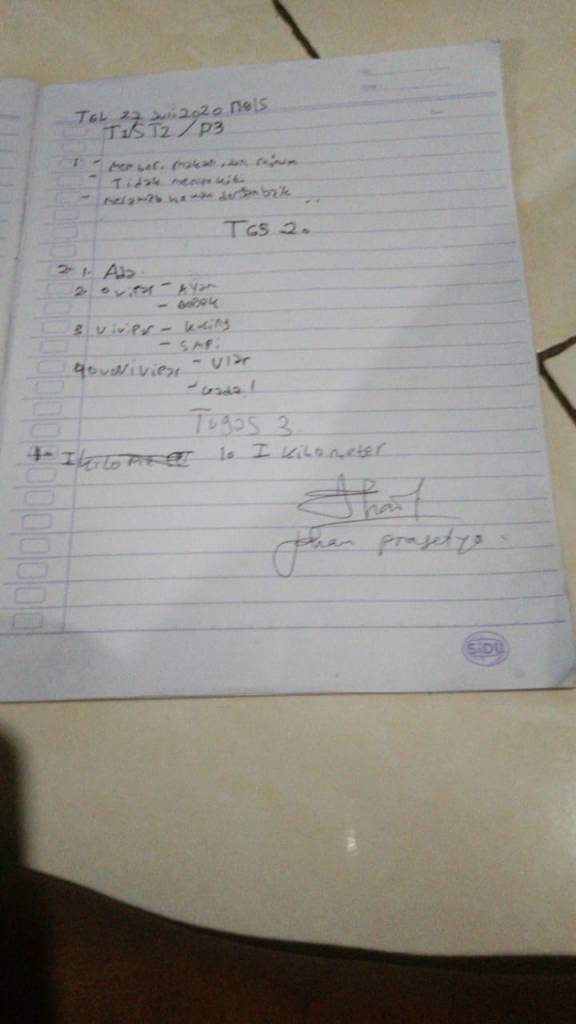 TGL 22 Juli 2020
T1/ST2/P3
1. - Member. makan dan minum
- Tidak menyakiti
- Melawat hewan dengan baik
TGS 2.
2. 1. Ada.
2. Ovipar - Ayam
- Bebek
3 Vivipar - Kucing
- SAPi
4 ovovivipar - Ular
- kadal
Tugas 3
1. I kilometer 10 I kilometer
prasetyo.
SiDU